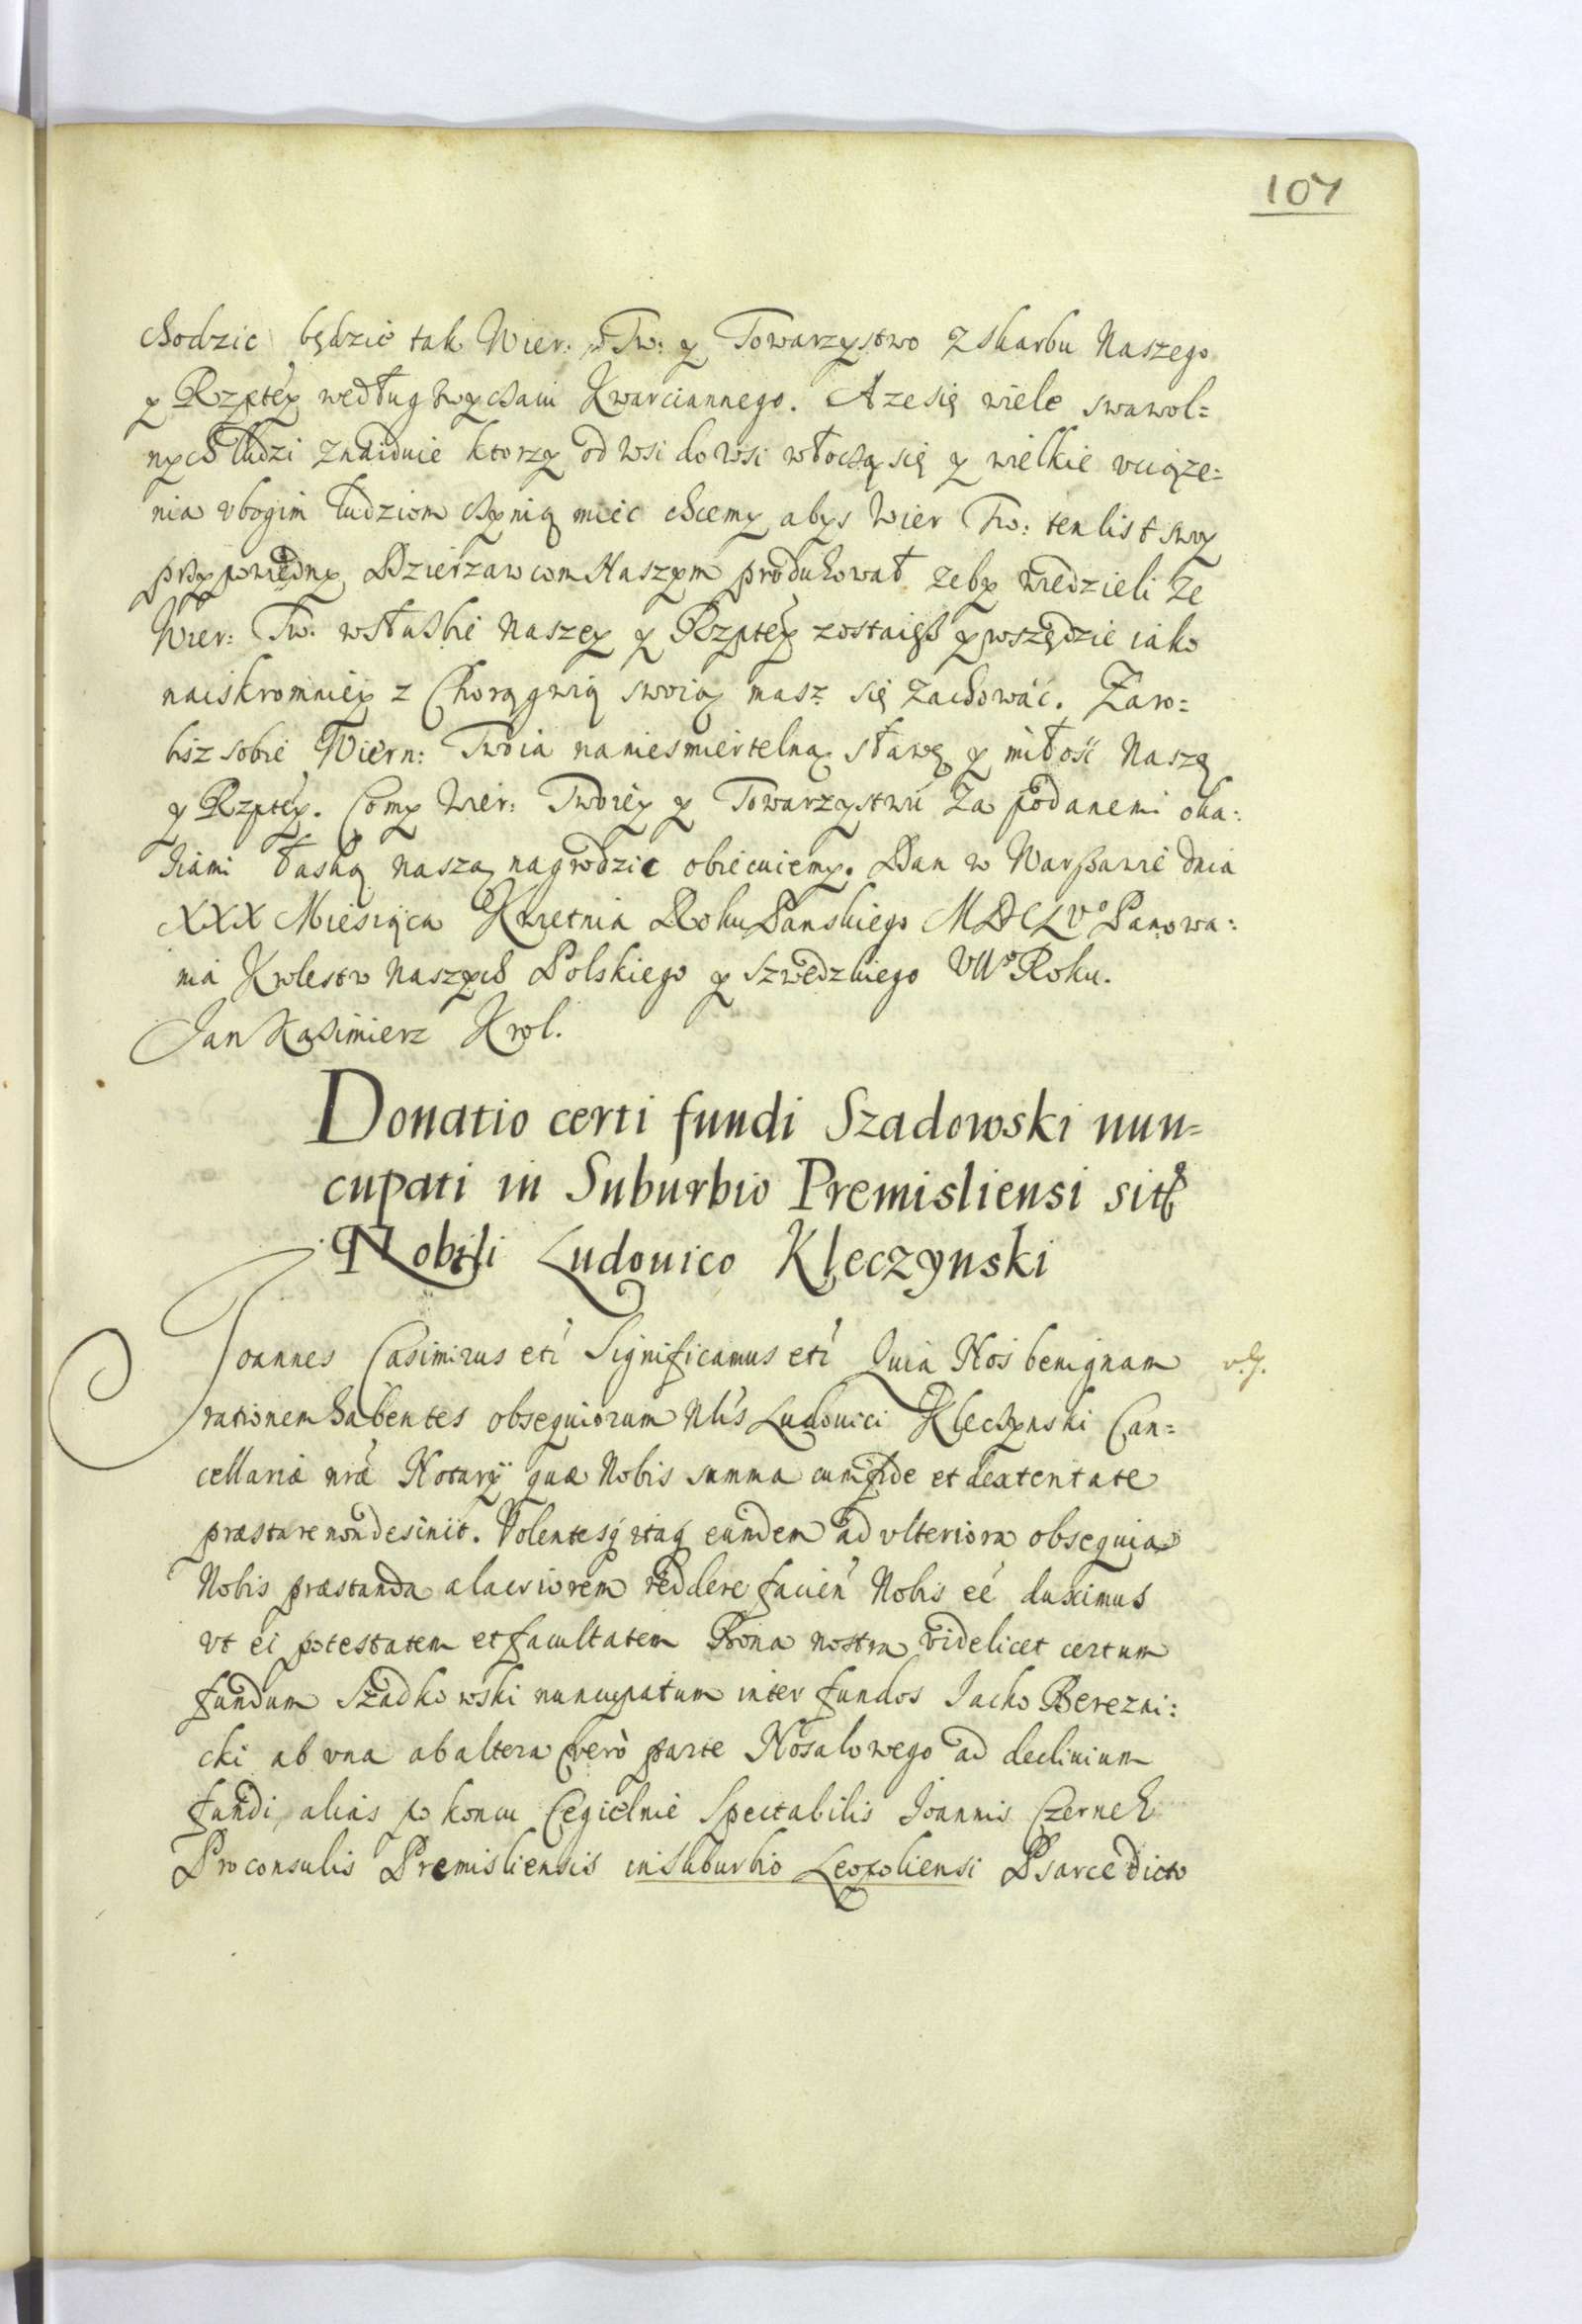 107
chodzic będzie tak Wier: Tw: y Towarzystwo z skarbu Naszego
y Rzptéy według zwyczaiu Kwarciannego. A ze się wiele swawol=
nych ludzi znaiduie ktorzy od wsi do wsi włoczą się y wielkie vciąze=
nia vbogim ludziom czynią miec chcemy abys Wier Tw: ten list swoy
przypowiedny Dzierzawcom Naszym produkował zeby wiedzieli ze
Wier: Tw. w słuzbie Naszey y Rzptéy zostaięsz y wszędzie iako
naiskromniey z Chorągwią swoią masz się zachowáć. Zaro=
bisz sobie Wiern: Twoia na niesmiertelną sławę y miłość Naszę
y Rzptéy. Co my Wier: Twoiéy y Towarzystwú za podanemi oka:
ziami łaską naszą nagrodzic obiecuiemy. Dan w Warszawie dnia
XXX Miesiąca Kwietnia Roku Panskiego MDCLVº Panowa:
nia Krolestw Naszych Polskiego y Szwedzkiego VIIº Roku.
Jan Kazimierz Krol.
Donatio certi fundi Szadowski nun=
cupati in Suburbio Premisliensi siti
Nobili Ludouico Kleczynski
Joannes Casimirus etc Significamus etc Quia Nos benignam
v.g.
rationem habentes obsequiorum Nlis Ludouici Kleczynski Can=
cellariæ nræ Notarÿ quæ Nobis summa cum fide et dexteritate
præstare non desinit. Volentesq itaq eundem ad vlteriora obsequia
Nobis præstanda alacriorem reddere facien Nobis eé duximus
vt ei potestatem et facultatem Bona nostra videlicet certum
fundum Szadkowski nuncupatum inter fundos Jacko Berezni:
cki ab vna ab altera verò parte Nosalowego ad decliuium
fundi alias po koncu Cegielnie Spectabilis Joannis Czernek
Proconsulis Premisliensis in suburbio Leopoliensi Psarce dicto